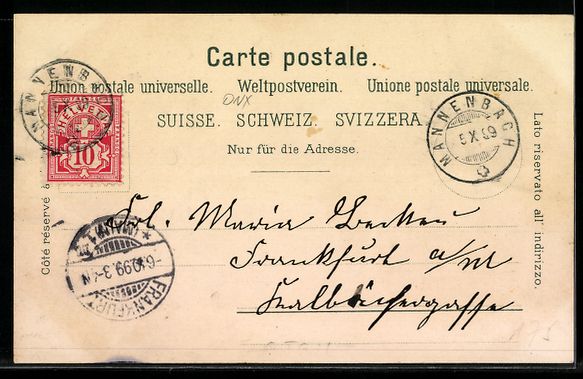 Carte postale.
Union postale universelle. Weltpostverein. Unione postale universale.
ONX
SUISSE. SCHWEIZ. SVIZZERA
Nur für die Adresse.
MANNENB
HELVETIA
10
MANNENBACH
5 X 99
Côté réservé à
Lato riservato all' indirizzo.
Frl. Maria
Frankfurt a/M
FRANKFURT
(MAIN) 1
-6.10.99.3-4N
175